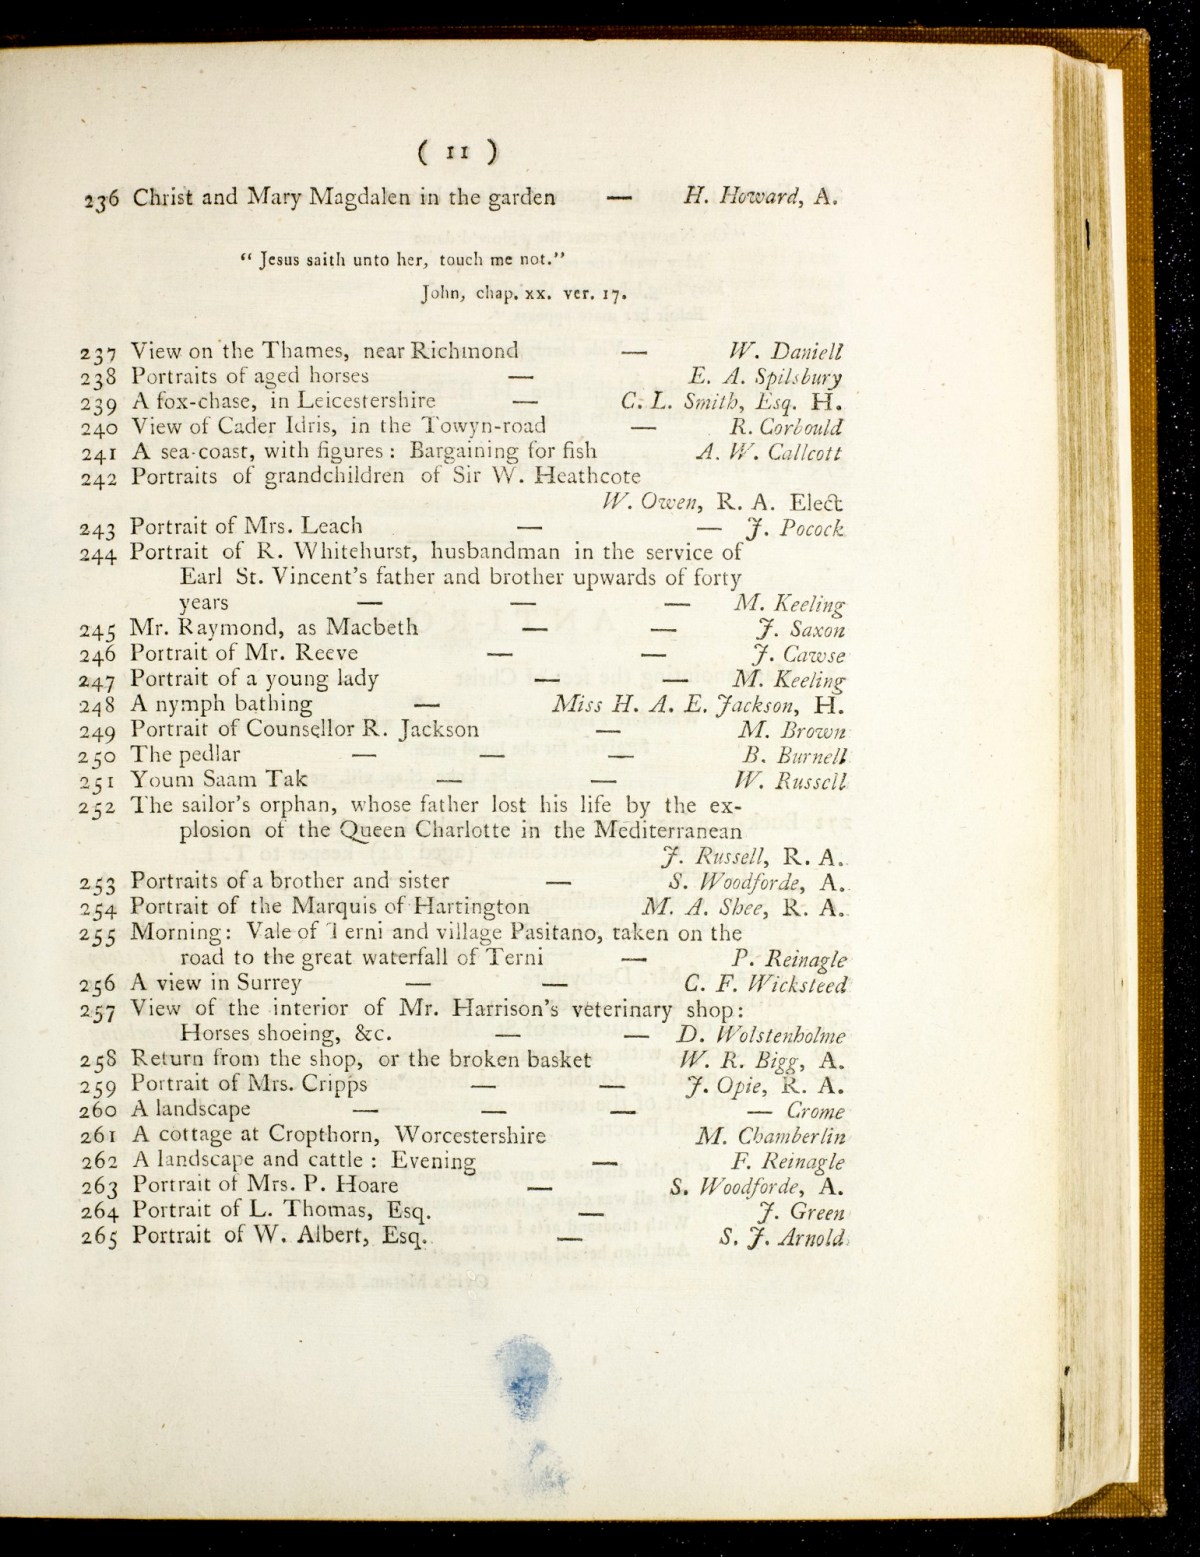 ( 11 )
236 Christ and Mary Magdalen in the garden — H. Howard, A.
“ Jesus saith unto her, touch me not.”
John, chap. xx. ver. 17.
237 View on the Thames, near Richmond — W. Daniell
238 Portraits of aged horses — E. A. Spilsbury
239 A fox-chase, in Leicestershire — C. L. Smith, Esq. H.
240 View of Cader Idris, in the Towyn-road — R. Corbould
241 A sea-coast, with figures : Bargaining for fish A. W. Callcott
242 Portraits of grandchildren of Sir W. Heathcote
W. Owen, R. A. Elect
243 Portrait of Mrs. Leach — — J. Pocock
244 Portrait of R. Whitehurst, husbandman in the service of
Earl St. Vincent’s father and brother upwards of forty
years — — — M. Keeling
245 Mr. Raymond, as Macbeth — — J. Saxon
246 Portrait of Mr. Reeve — — J. Cawse
247 Portrait of a young lady — — M. Keeling
248 A nymph bathing — Miss H. A. E. Jackson, H.
249 Portrait of Counsellor R. Jackson — M. Brown
250 The pedlar — — — B. Burnell
251 Youm Saam Tak — — W. Russell
252 The sailor’s orphan, whose father lost his life by the ex-
plosion of the Queen Charlotte in the Mediterranean
J. Russell, R. A.
253 Portraits of a brother and sister — S. Woodforde, A.
254 Portrait of the Marquis of Hartington M. A. Shee, R. A.
255 Morning : Vale of Terni and village Pasitano, taken on the
road to the great waterfall of Terni — P. Reinagle
256 A view in Surrey — — C. F. Wicksteed
257 View of the interior of Mr. Harrison’s veterinary shop :
Horses shoeing, &c. — — D. Wolstenholme
258 Return from the shop, or the broken basket W. R. Bigg, A.
259 Portrait of Mrs. Cripps — — J. Opie, R. A.
260 A landscape — — — — Crome
261 A cottage at Cropthorn, Worcestershire M. Chamberlin
262 A landscape and cattle : Evening — F. Reinagle
263 Portrait of Mrs. P. Hoare — S. Woodforde, A.
264 Portrait of L. Thomas, Esq. — J. Green
265 Portrait of W. Albert, Esq. — S. J. Arnold